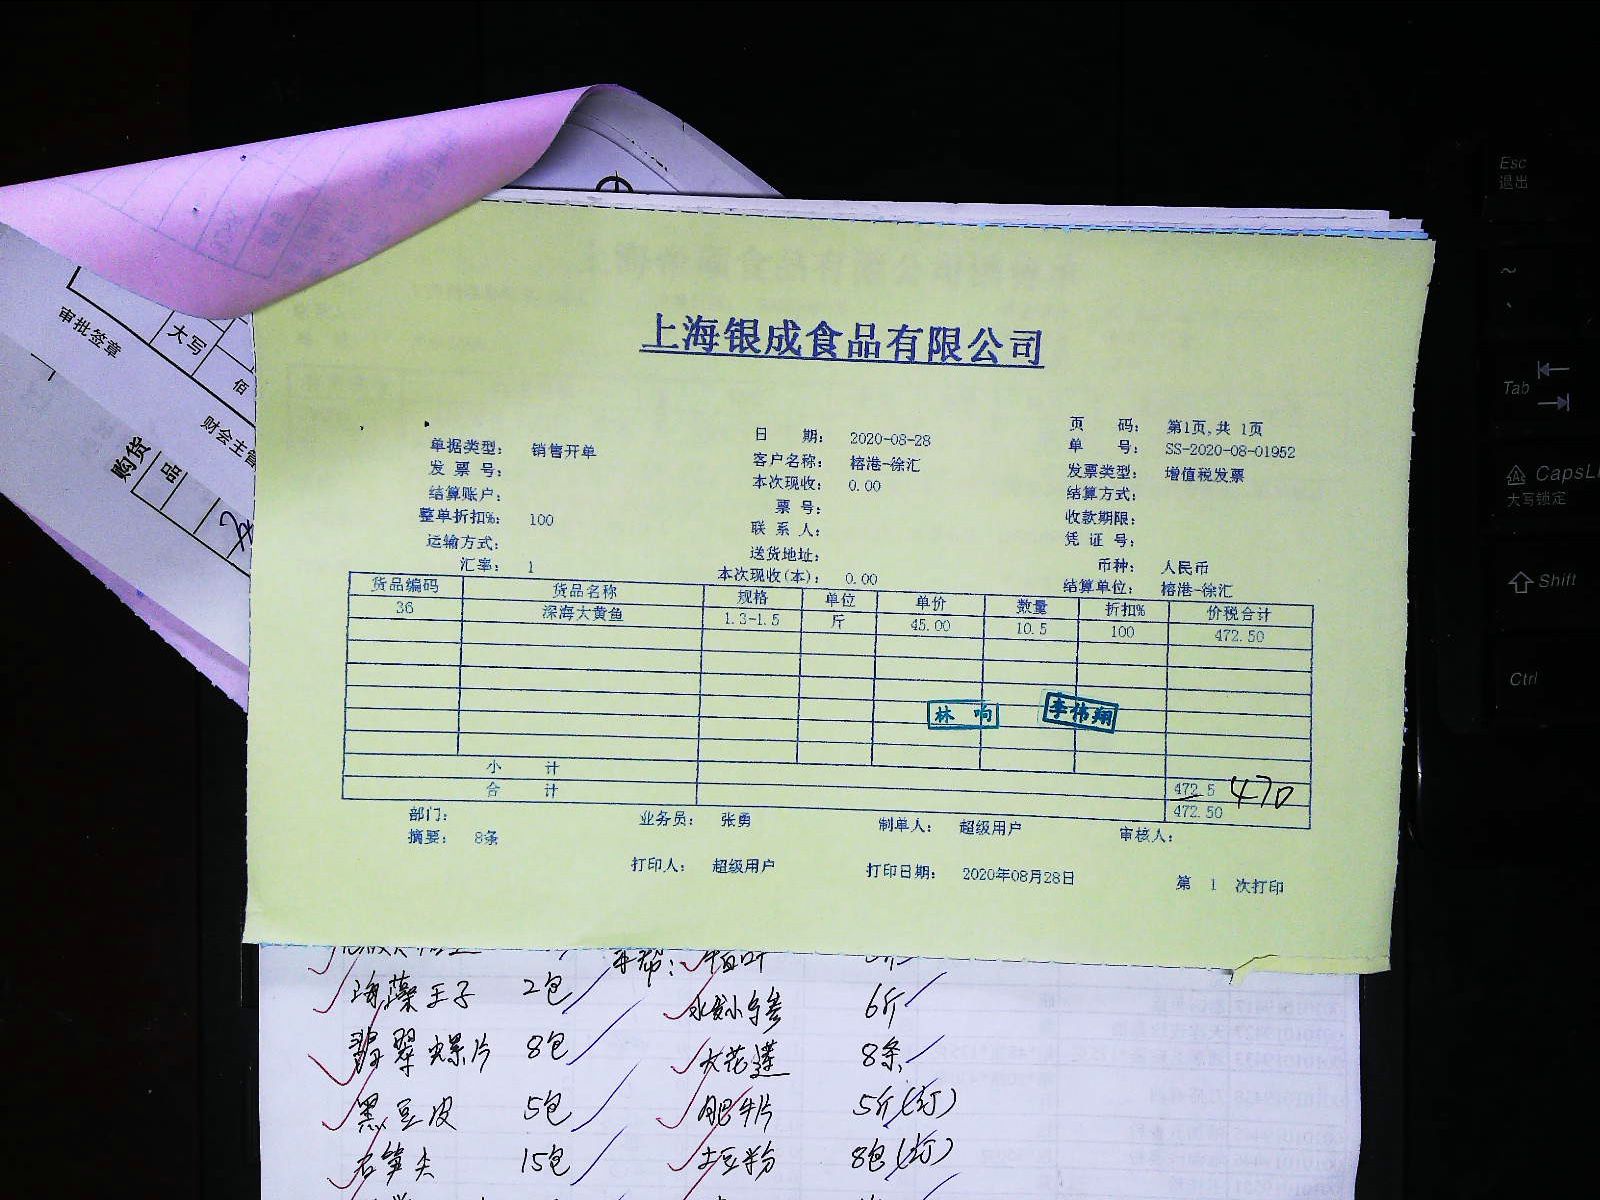 上海银成食品有限公司
单据类型: 销售开单 日 期: 2020-08-28 页 码: 第1页,共 1页
发 票 号: 客户名称: 榕港-徐汇 单 号: SS-2020-08-01952
结算账户: 本次现收: 0.00 发票类型: 增值税发票
整单折扣%: 100 票 号: 结算方式:
运输方式: 联 系 人: 收款期限:
汇率: 1 送货地址: 凭 证 号:
本次现收(本): 0.00 币种: 人民币
结算单位: 榕港-徐汇
货品编码 货品名称 规格 单位 单价 数量 折扣% 价税合计
36 深海大黄鱼 1.3-1.5 斤 45.00 10.5 100 472.50
林 响 李伟翔
小 计 472.5 470
合 计 472.50
部门: 业务员: 张勇 制单人: 超级用户 审核人:
摘要: 8条
打印人: 超级用户 打印日期: 2020年08月28日 第 1 次打印
审批签章
大写
佰
财会主管
购货
品
海藻王子 2包 6斤
翡翠螺片 8包 大花莲 8条
黑豆皮 5包 肥牛片 5斤(订)
石笋尖 15包 土豆粉 8包(订)
Esc
退出
~
Tab
CapsL
大写锁定
Shift
Ctrl